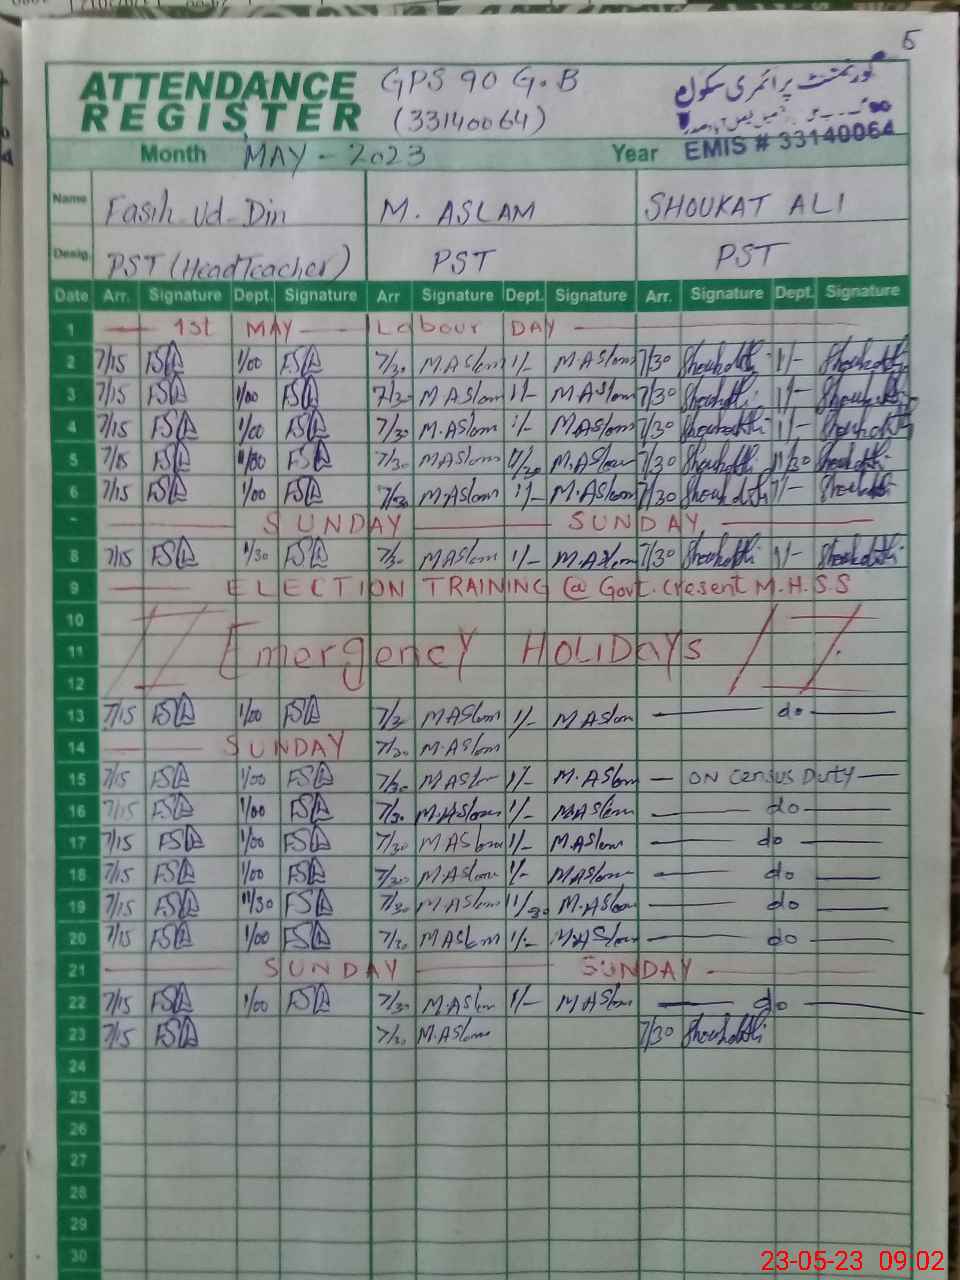 5
ATTENDANCE GPS 90 G.B گورنمنٹ پرائمری سکول
REGISTER (33140064)
Month MAY - 2023 Year EMIS # 33140064
Name Fasih Ud Din M. ASLAM SHOUKAT ALI
Desig. PST (HeadTeacher) PST PST
Date Arr. Signature Dept. Signature Arr Signature Dept. Signature Arr. Signature Dept. Signature
1 1st MAY Labour DAY
2 7/15 1/00 7/30 M Aslam 1/- M.Aslam 7/30 1/-
3 7/15 1/00 7/30 M Aslam 1/- M Aslam 7/30 1/-
4 7/15 1/00 7/30 M.Aslam 1/- M Aslam 7/30 1/-
5 7/15 11/30 7/30 M Aslam 11/30 M.Aslam 7/30 11/30
6 7/15 1/00 7/30 M.Aslam 1/- M.Aslam 7/30 1/-
- SUNDAY SUNDAY
8 7/15 1/30 7/30 M Aslam 1/- M.Aslam 7/30 1/-
9 ELECTION TRAINING @ Govt. Cresent M.H.S.S
10
11 Emergency HOLIDAYS
12
13 7/15 1/00 7/30 M Aslam 1/- M Aslam do
14 SUNDAY 7/30 M.Aslam
15 7/15 1/00 7/30 M Aslam 1/- M.Aslam ON Census DUTY
16 7/15 1/00 7/30 M.Aslam 1/- M.Aslam do
17 7/15 1/00 7/30 M Aslam 1/- M.Aslam do
18 7/15 1/00 7/30 M Aslam 1/- M Aslam do
19 7/15 11/30 7/30 M Aslam 11/30 M.Aslam do
20 7/15 1/00 7/30 M Aslam 1/- M.Aslam do
21 SUNDAY SUNDAY
22 7/15 1/00 7/30 M.Aslam 1/- M Aslam do
23 7/15 7/30 M.Aslam 7/30
24
25
26
27
28
29
30
23-05-23 09:02